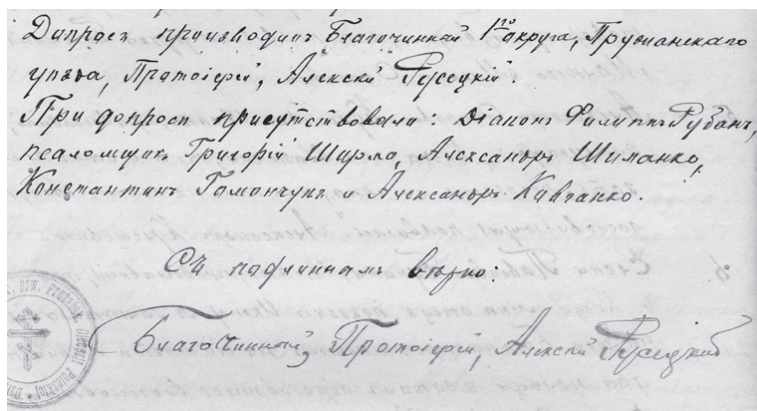 Допросъ производилъ Благочинный 1го округа, Пружанскаго
уѣзда, Протоіерей, Алексѣй Русецкій.
При допросѣ присутствовали: Діаконъ Филиппъ Рубанъ,
псаломщикъ Григорій Ширма, Александръ Шиланко,
Константинъ Гаманчукъ и Александръ Кавчанко.
Съ подлиннымъ вѣрно:
Благочинный, Протоіерей, Алексѣй Русецкій